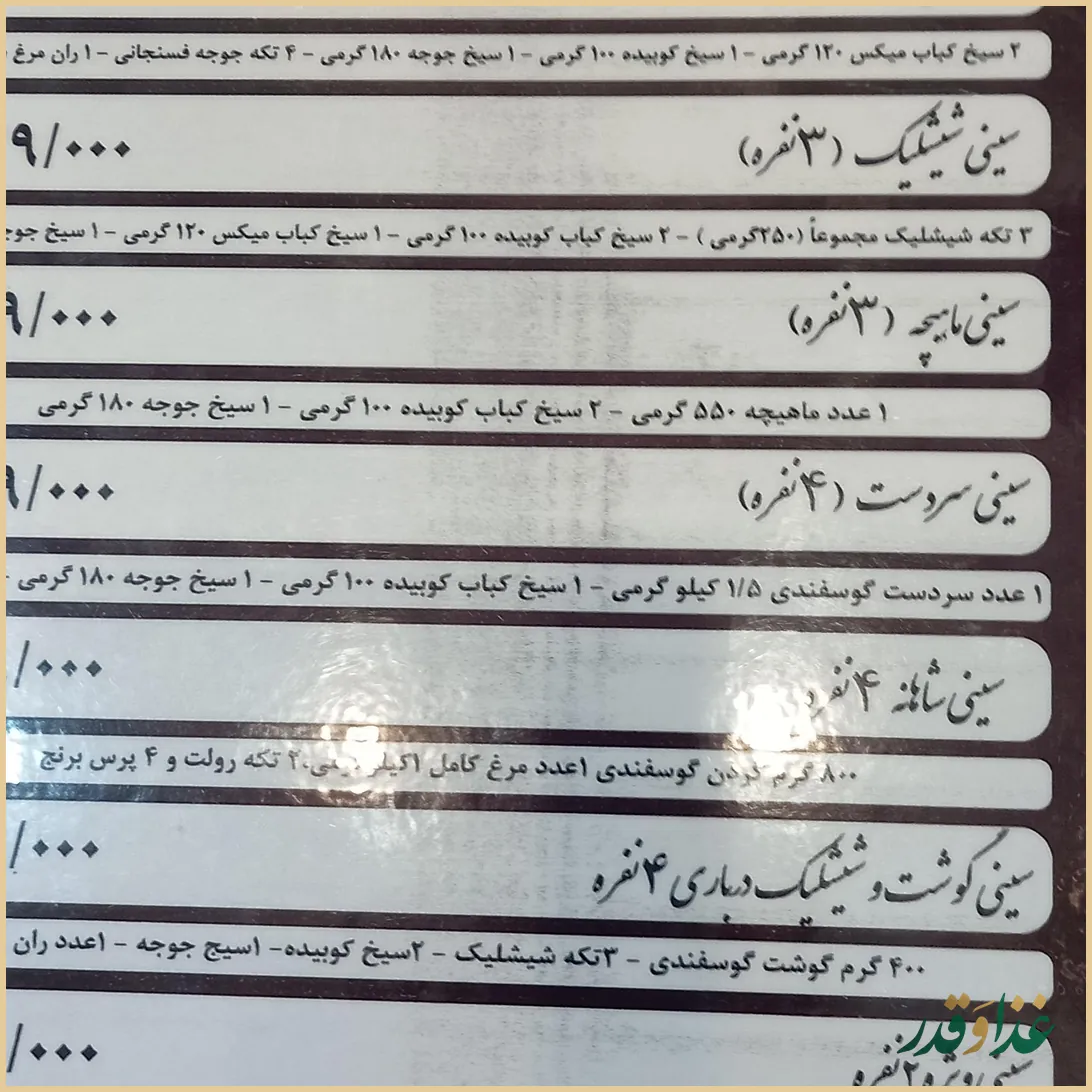 ۲ سیخ کباب میکس ۱۲۰ گرمی - ۱ سیخ کوبیده ۱۰۰ گرمی - ۱ سیخ جوجه ۱۸۰ گرمی - ۴ تکه جوجه فسنجانی - ۱ ران مرغ
سینی شیشلیک (۳ نفره) ۹/۰۰۰
۳ تکه شیشلیک مجموعاً (۲۵۰گرمی) - ۲ سیخ کباب کوبیده ۱۰۰ گرمی - ۱ سیخ کباب میکس ۱۲۰ گرمی - ۱ سیخ جوج
سینی ماهیچه (۳ نفره) ۹/۰۰۰
۱ عدد ماهیچه ۵۵۰ گرمی - ۲ سیخ کباب کوبیده ۱۰۰ گرمی - ۱ سیخ جوجه ۱۸۰ گرمی
سینی سردست (۴ نفره) ۹/۰۰۰
۱ عدد سردست گوسفندی ۱/۵ کیلو گرمی - ۱ سیخ کباب کوبیده ۱۰۰ گرمی - ۱ سیخ جوجه ۱۸۰ گرمی -
سینی شاهانه ۴ نفره /۰۰۰
۸۰۰ گرم گردن گوسفندی ۱عدد مرغ کامل ۲ تکه رولت و ۴ پرس برنج
سینی گوشت و شیشلیک درباری ۴ نفره /۰۰۰
۴۰۰ گرم گوشت گوسفندی - ۳تکه شیشلیک - ۲سیخ کوبیده- ۱سیج جوجه - ۱عدد ران
سینی ویژه ۲ نفره /۰۰۰
غذا و قدر